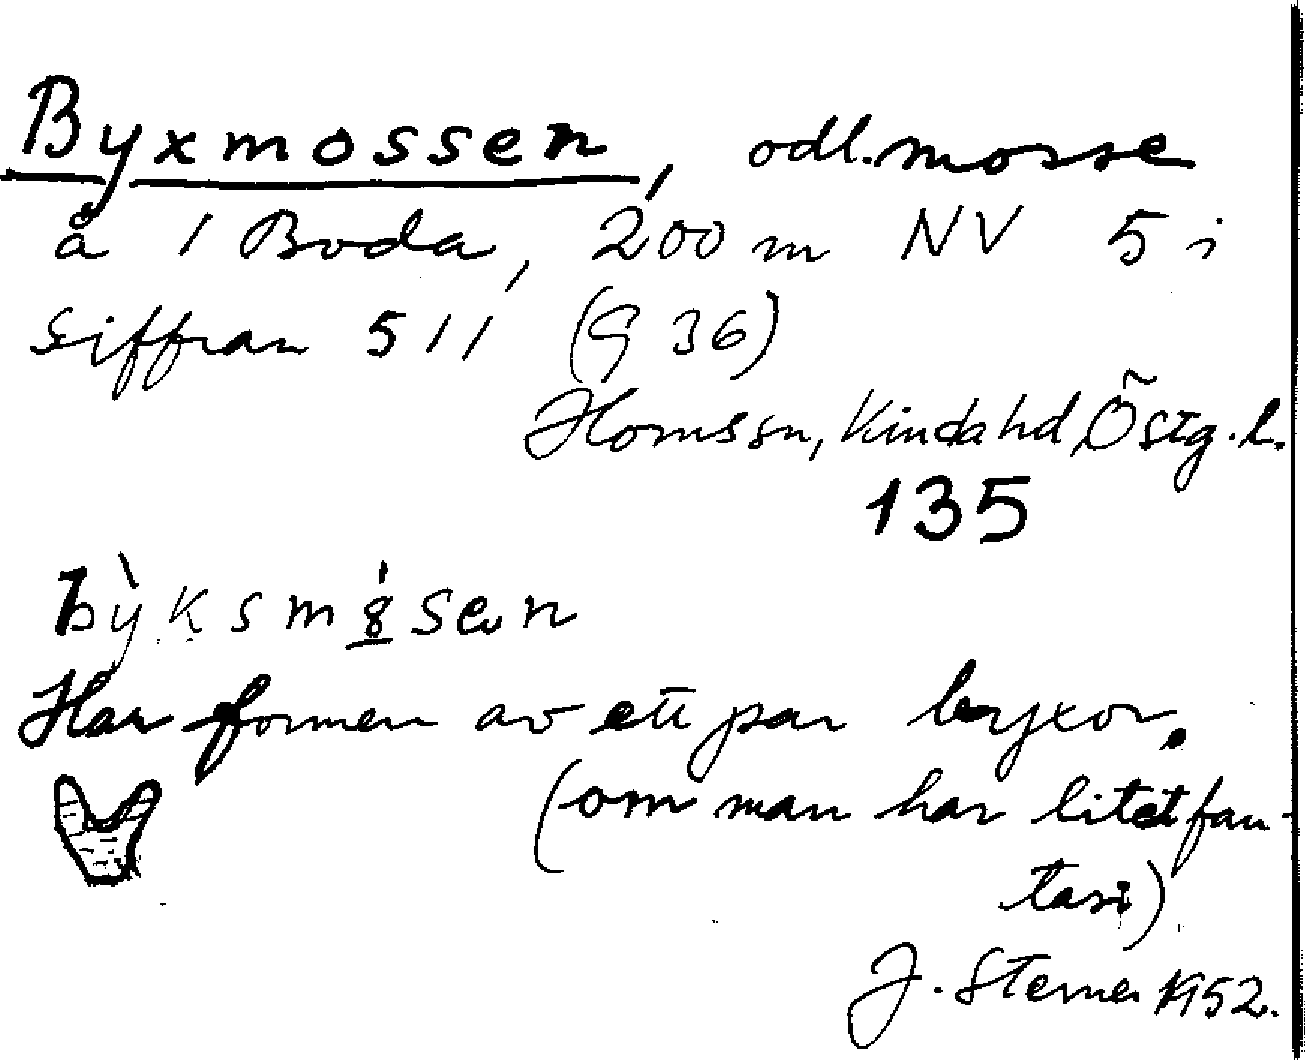 Byxmossen, odl. mosse
å 1 Boda, 200 m NV 5 i
siffran 511 (G 36)
Horns sn, Kinda hd, Östg. l.
135
bỳksmèsen
Har formen av ett par byxor.
(om man har litet fan-
tasi)
J. Sterner 1952.